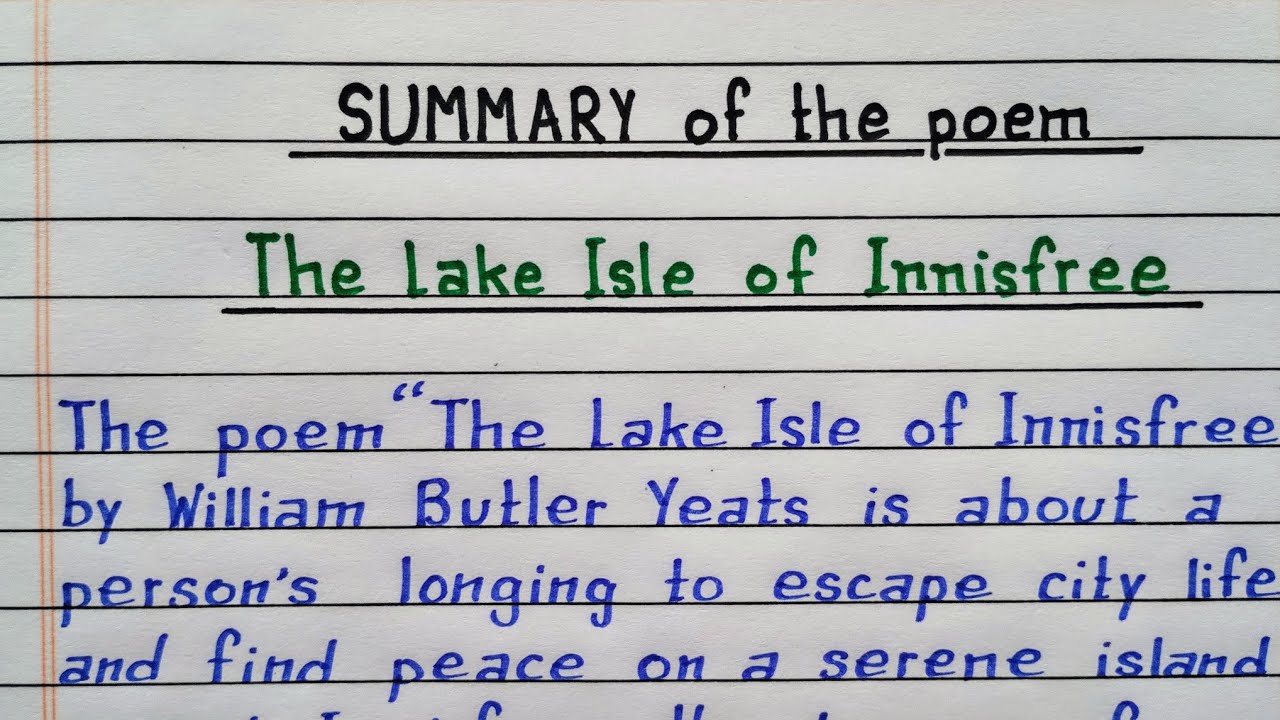 SUMMARY of the poem
The Lake Isle of Innisfree
The poem “The Lake Isle of Innisfree
by William Butler Yeats is about a
person's longing to escape city life
and find peace on a serene island